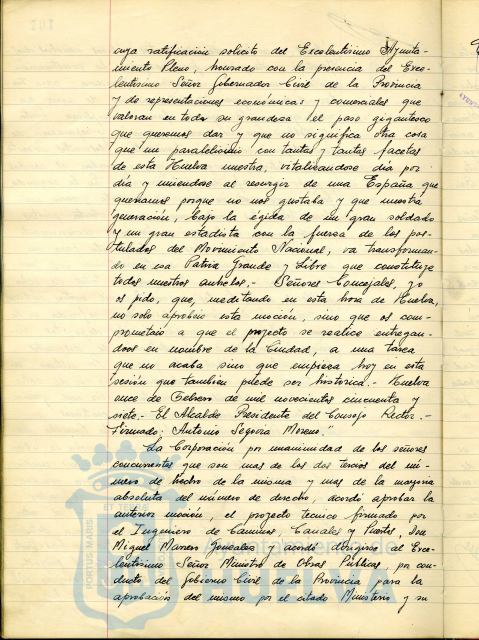 cuya ratificación solicito del Excelentísimo Ayunta-
miento Pleno, honrado con la presencia del Exce-
lentísimo Señor Gobernador Civil de la Provincia
y de representaciones económicas y comerciales que
valoran en toda su grandeza el paso gigantesco
que queremos dar y que no significa otra cosa
que un paralelismo con tantas y tantas facetas
de esta Huelva nuestra, vitalizandose día por
día y uniendose al resurgir de una España que
queríamos porque no nos gustaba y que nuestra
generación, bajo la égida de un gran soldado
y un gran estadista con la fuerza de los pos-
tulados del Movimiento Nacional, va transforman-
do en esa Patria Grande y Libre que constituye
todos nuestros anhelos.- Señores Concejales, yo
os pido, que, meditando en esta hora de Huelva,
no solo aprobeis esta moción, sino que os com-
prometais a que el proyecto se realice entregan-
doos en nombre de la Ciudad, a una tarea
que no acaba sino que empieza hoy en esta
sesión que tambien puede ser histórica.- Huelva
once de Febrero de mil novecientos cincuenta y
siete.- El Alcalde Presidente del Consejo Rector.-
Firmado: Antonio Segovia Moreno."
La Corporación por unanimidad de los señores
concurrentes que son mas de los dos tercios del nú-
mero de hecho de la misma y mas de la mayoria
absoluta del número de derecho, acordó aprobar la
anterior moción, el proyecto tecnico formado por
el Ingeniero de Caminos, Canales y Puertos, Don
Miguel Gonzalez y acordó dirigirse al Exce-
lentísimo Señor Ministro de Obras Públicas, por con-
ducto del Gobierno Civil de la Provincia para la
aprobación del mismo por el citado Ministerio y su
PORTUS MARIS